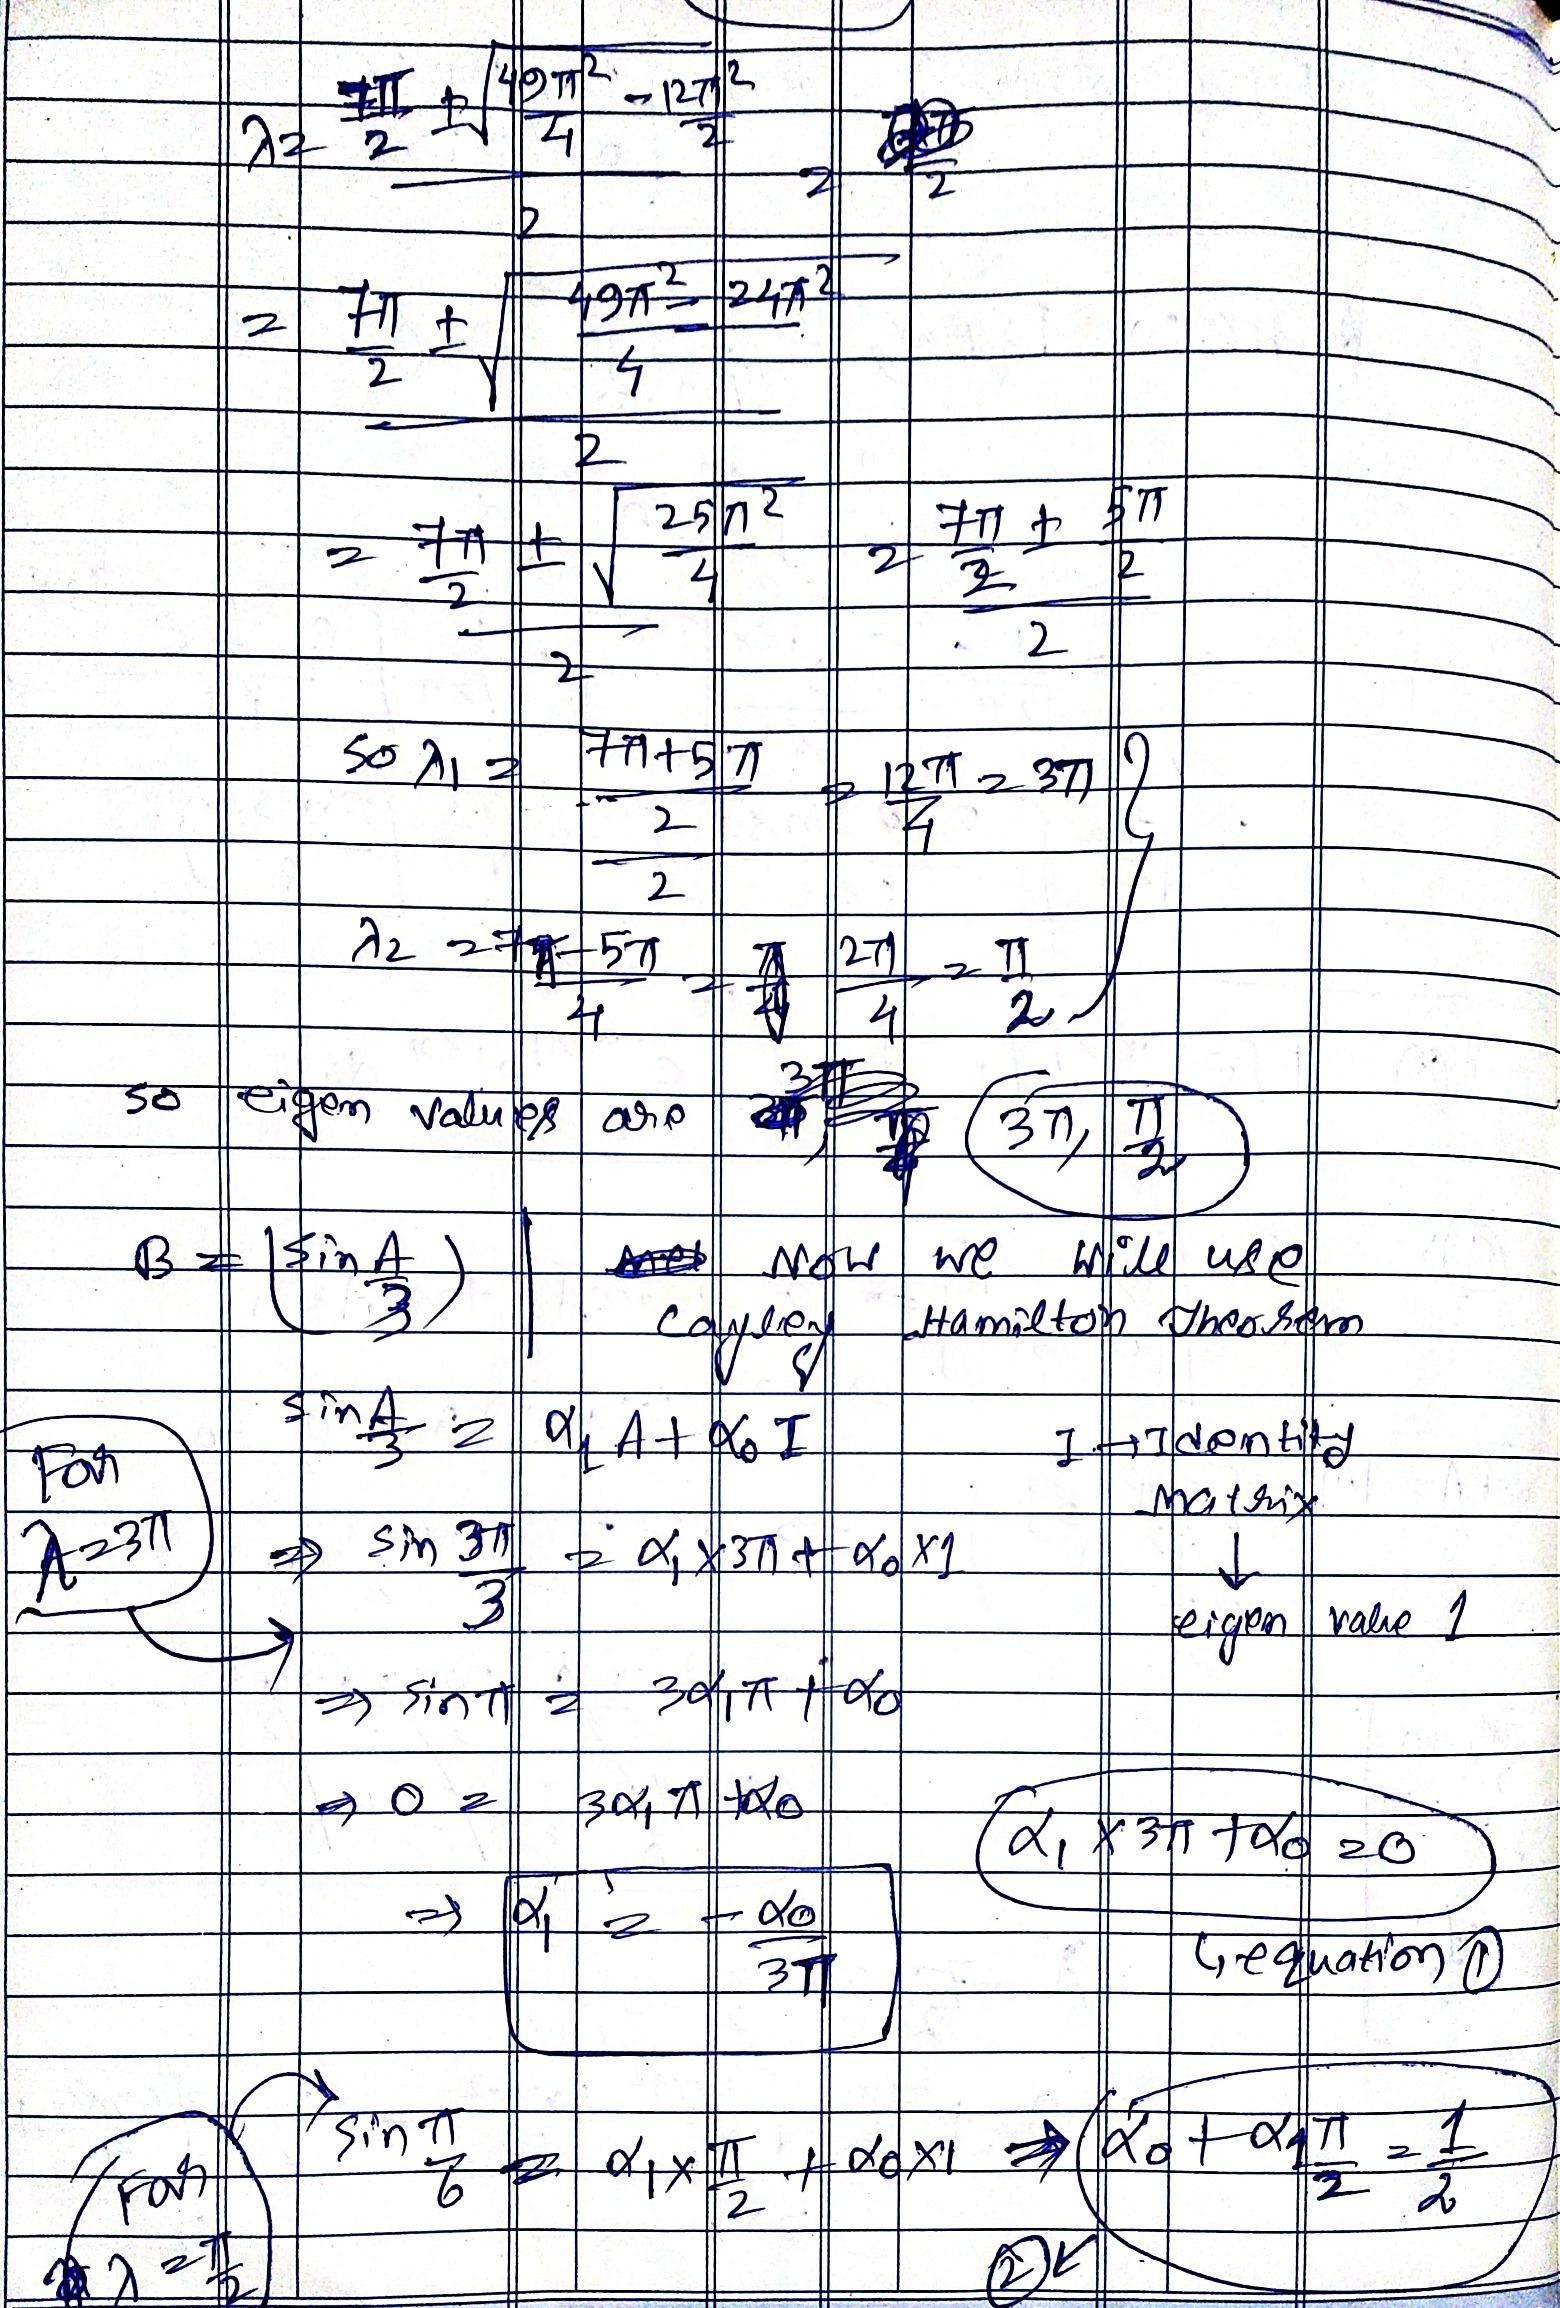 λ = (7π/2 ± √(49π²/4 - 12π²/2))/2 =
= (7π/2 ± √((49π² - 24π²)/4))/2
= (7π/2 ± √(25π²/4))/2 = (7π/2 ± 5π/2)/2
so λ1 = ((7π+5π)/2)/2 = 12π/4 = 3π
λ2 = (7π-5π)/4 = 2π/4 = π/2
so eigen values are 3π, π/2
B = (sin A/3) | Now we will use
Cayley Hamilton Theorem
sin A/3 = α1 A + α0 I
I → Identity
Matrix
↓
eigen value 1
For
λ = 3π
⇒ sin 3π/3 = α1 × 3π + α0 × 1
⇒ sin π = 3α1π + α0
⇒ 0 = 3α1π + α0
α1 × 3π + α0 = 0
↳ equation ①
⇒ α1 = - α0/3π
For
λ = π/2
sin π/6 = α1 × π/2 + α0 × 1 ⇒ α0 + α1 π/2 = 1/2
②